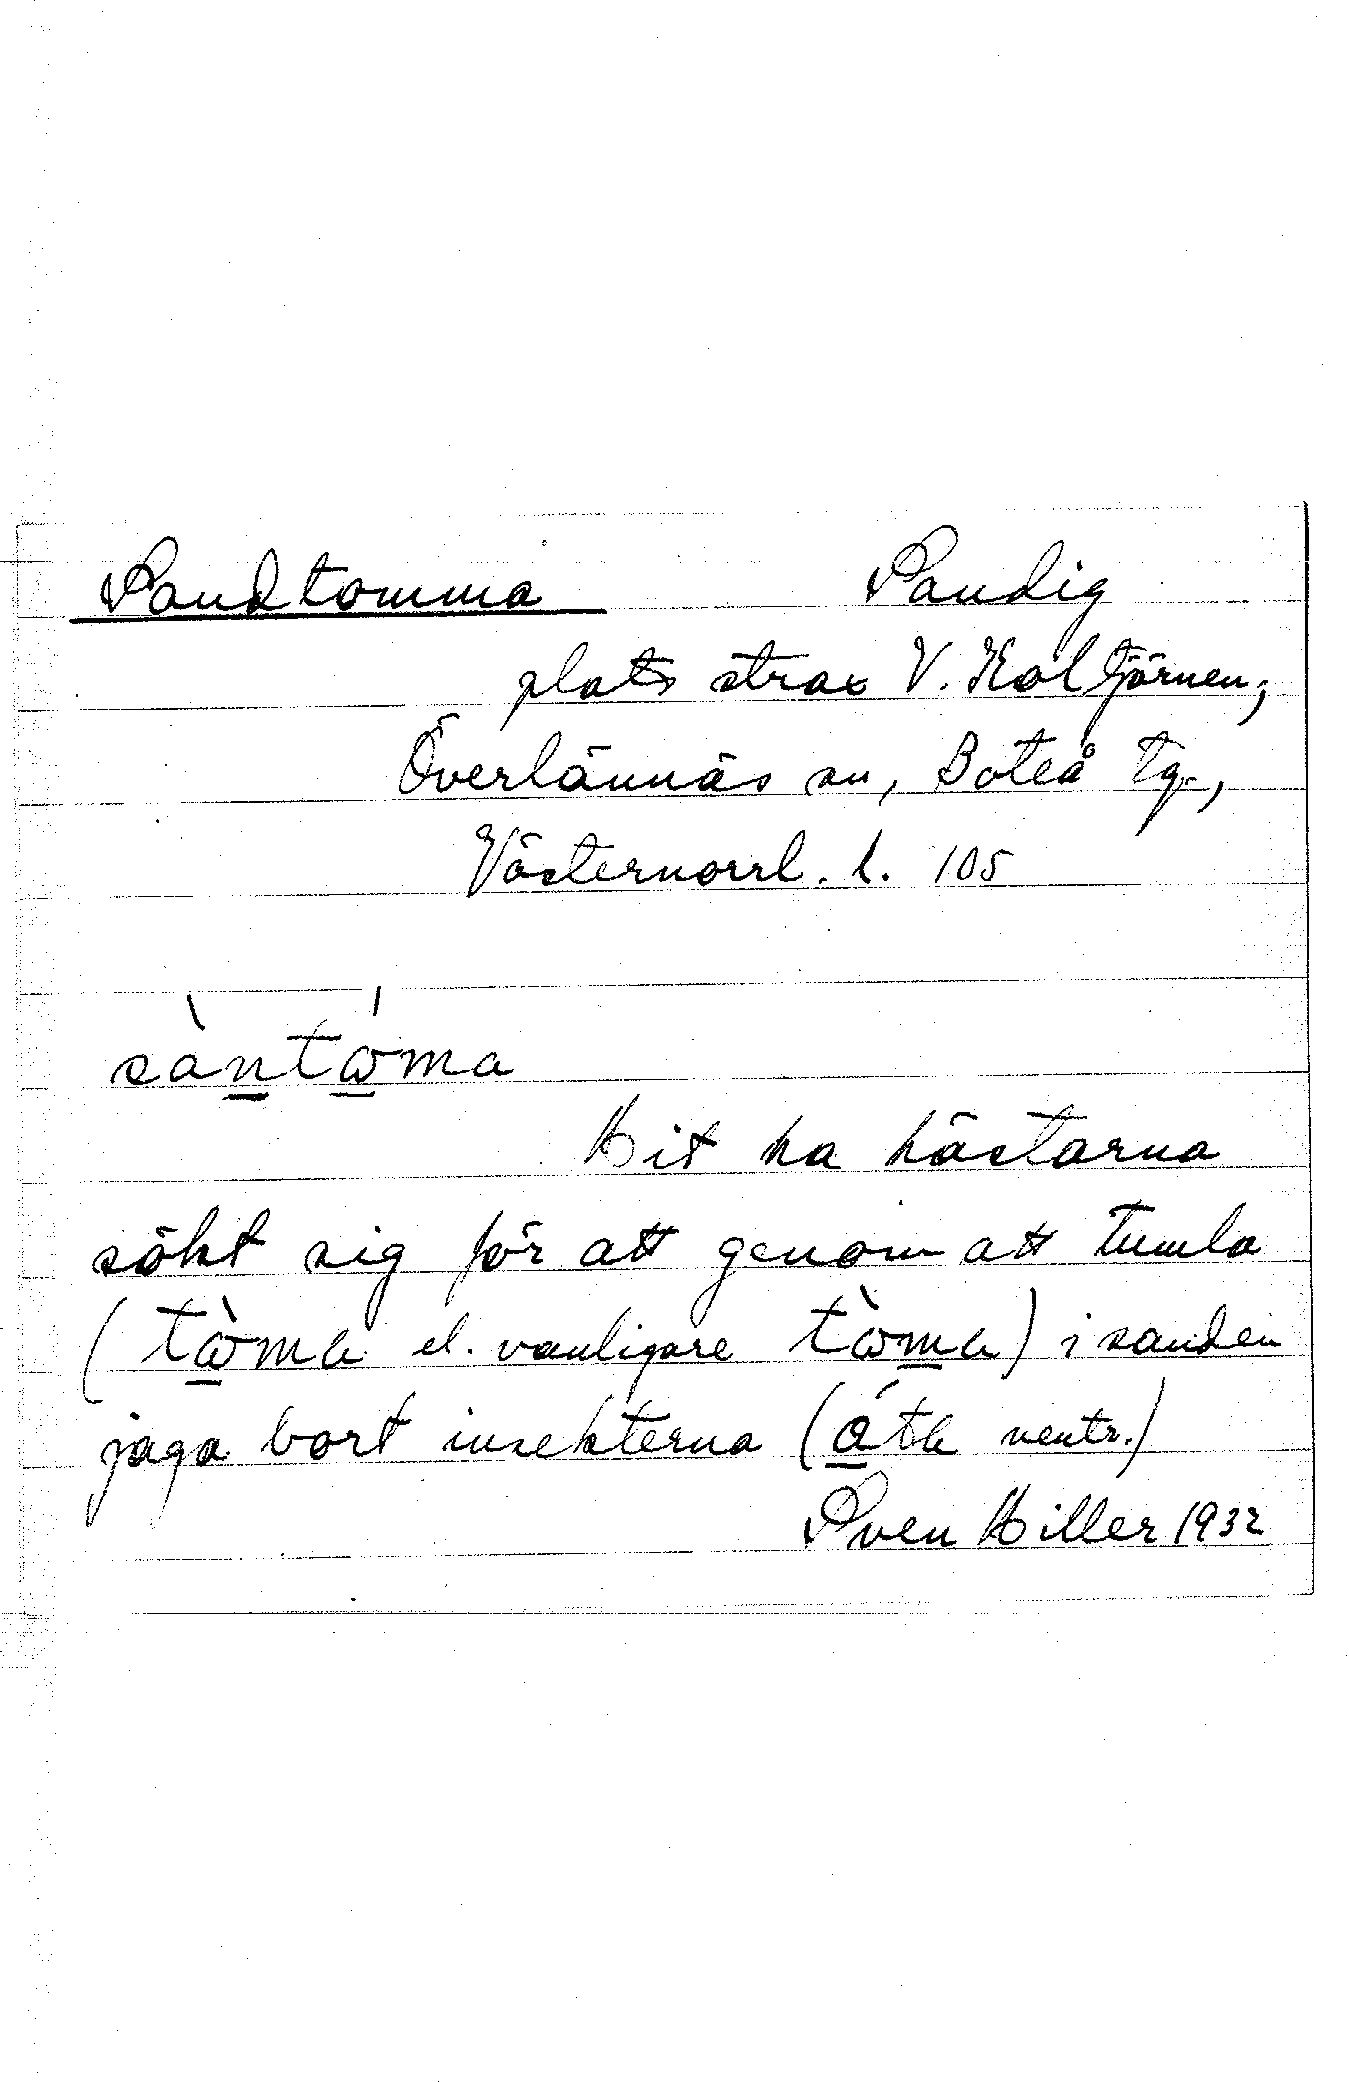 Sandtomma Sandig
plats strax V. Koltjörnen,
Överlännäs sn, Boteå tg.,
Västernorrl. l. 105
sàn̲tώ̲ma
Hit ha hästarna
sökt sig för att genom att tumla
(tὼ̲ma el. vanligare tὼm̲a) i sanden
jaga bort insekterna (á̲tɐ neutr.)
Sven Hiller 1932